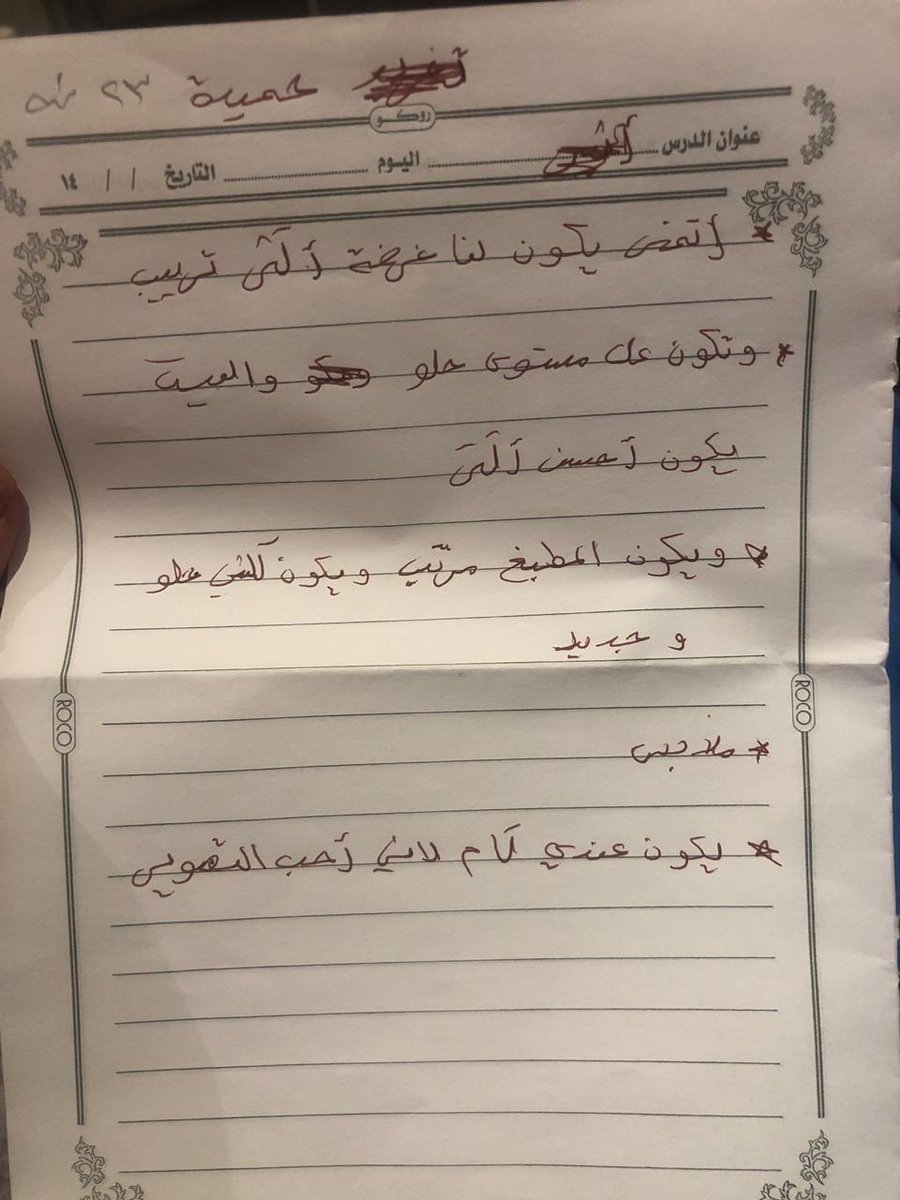 حميدة ٢٣ سنه
روكو
عنوان الدرس اليوم التاريخ / / ١٤
* أتمنى يكون لنا غرفة أكثر ترتيب
* وتكون على مستوى حلو والبيت
يكون أحسن أكثر
* ويكون المطبخ مرتّب ويكون كلشي حلو
و جديد
ROCO
ROCO
* ملابس
* يكون عندي كام لاني أحب التصوير